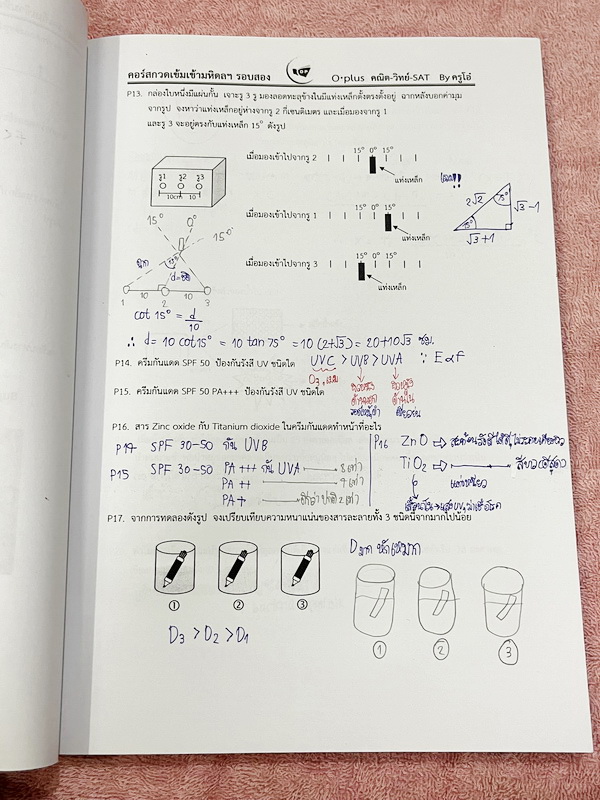 คอร์สกวดเข้มเข้ามหิดลฯ รอบสอง
O·plus คณิต-วิทย์-SAT By ครูโอ๋
P13. กล่องใบหนึ่งมีแผ่นกั้น เจาะรู 3 รู มองลอดทะลุข้างในมีแท่งเหล็กตั้งตรงตั้งอยู่ ฉากหลังบอกค่ามุม
จากรูป จงหาว่าแท่งเหล็กอยู่ห่างจากรู 2 กี่เซนติเมตร และเมื่อมองจากรู 1
และรู 3 จะอยู่ตรงกับแท่งเหล็ก 15° ดังรูป
เมื่อมองเข้าไปจากรู 2
15° 0° 15°
แท่งเหล็ก
รู1 รู2 รู3
10cm 10
เมื่อมองเข้าไปจากรู 1
15° 0° 15°
แท่งเหล็ก
2√2
75°
√3-1
15°
√3+1
15° 0° 15°
เมื่อมองเข้าไปจากรู 3
15° 0° 15°
แท่งเหล็ก
1 10 2 10 3
cot 15° = d/10
∴ d = 10 cot15° = 10 tan 75° = 10 (2+√3) = 20+10√3 ซม.
P14. ครีมกันแดด SPF 50 ป้องกันรังสี UV ชนิดใด UVC > UVB > UVA ∵ E α f
P15. ครีมกันแดด SPF 50 PA+++ ป้องกันรังสี UV ชนิดใด
P16. สาร Zinc oxide กับ Titanium dioxide ในครีมกันแดดทำหน้าที่อะไร
P14 SPF 30-50 กัน UVB
P15 SPF 30-50 PA +++ กัน UVA 8 เท่า
PA ++ 4 เท่า
PA + 2 เท่า
P16 ZnO ⇨
TiO2 ⇨
P17. จากการทดลองดังรูป จงเปรียบเทียบความหนาแน่นของสารละลายทั้ง 3 ชนิดนี้จากมากไปน้อย
① ② ③
D3 > D2 > D1
① ② ③